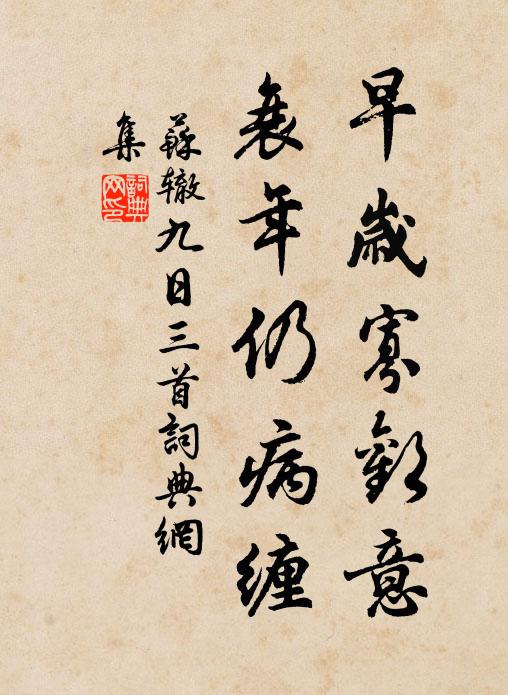 早歲寡歡意
衰年仍病纏
蘇辙九日三首詞典網
集
詞典网印